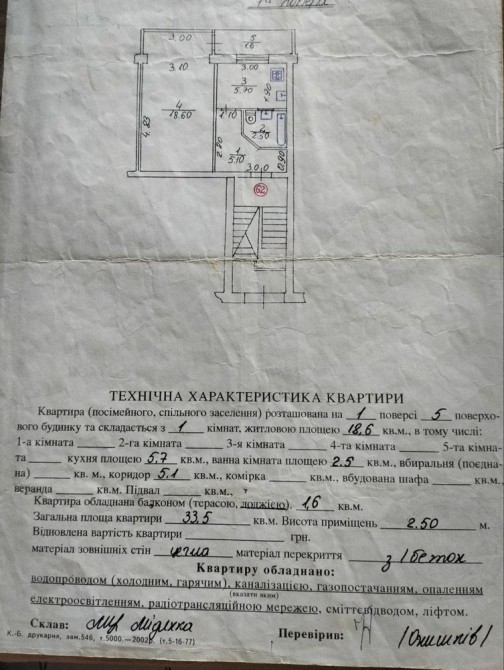 1й поверх
3.00
5
1.6
3.10
3.00
3
5.70
1.90
4
18.60
4.83
2.10
2
2.50
2.20
1
5.10
0.90
3.00
62
ТЕХНІЧНА ХАРАКТЕРИСТИКА КВАРТИРИ
Квартира (посімейного, спільного заселення) розташована на 1 поверсі 5 поверхо-
вого будинку та складається з 1 кімнат, житловою площею 18,6 кв.м., в тому числі:
1-а кімната 2-га кімната 3-я кімната 4-та кімната 5-та кімна-
та кухня площею 5,7 кв.м., ванна кімната площею 2.5 кв.м., вбиральня (поєдна-
на) кв. м., коридор 5.1 кв.м., комірка кв.м., вбудована шафа кв.м.,
веранда кв.м. Підвал кв.м.,
Квартира обладнана балконом (терасою, лоджією). 1,6 кв.м.
Загальна площа квартири 33,5 кв.м. Висота приміщень 2.50 м.
Відновлена вартість квартири грн.
матеріал зовнішніх стін цегла матеріал перекриття з/бетон
Квартиру обладнано:
водопроводом (холодним, гарячим), каналізацією, газопостачанням, опаленням
(вказати яким)
електроосвітленням, радіотрансляційною мережею, сміттєвідводом, ліфтом.
Склав: Перевірив:
К.-Б. друкарня, зам.546, т.5000.—2002р. (т.5-16-77)